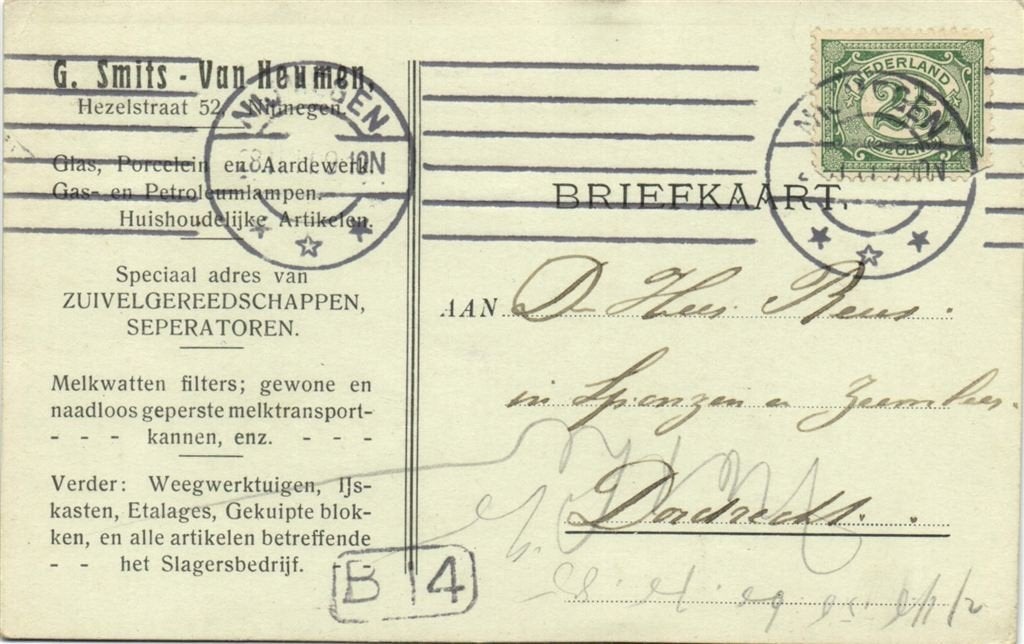 G. Smits - Van Heumen.
Hezelstraat 52, Nijmegen.
Glas, Porcelein en Aardewerk.
Gas- en Petroleumlampen.
Huishoudelijke Artikelen.
Speciaal adres van
ZUIVELGEREEDSCHAPPEN,
SEPERATOREN.
Melkwatten filters; gewone en
naadloos geperste melktransport-
- - - kannen, enz. - - -
Verder: Weegwerktuigen, IJs-
kasten, Etalages, Gekuipte blok-
ken, en alle artikelen betreffende
- - het Slagersbedrijf.
B 4
NIJMEGEN
10N
NEDERLAND
2½
BRIEFKAART.
AAN De Heer Reus.
in Sponzen en Zeemleer.
Dordrecht.